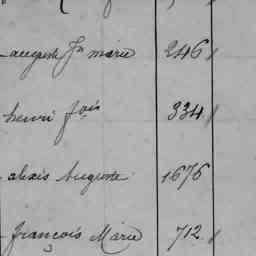 auguste Jn marie 246
henri fois 334
alexis Auguste 1676
françois Marie 712